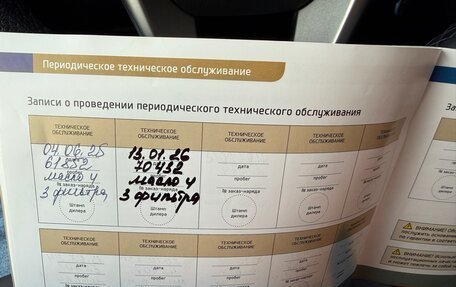 Периодическое техническое обслуживание
Записи о проведении периодического технического обслуживания
За
ТЕХНИЧЕСКОЕ ОБСЛУЖИВАНИЕ
04.06.25
61882
масло и
№ заказ-наряда
3 фильтра
Штамп дилера
ТЕХНИЧЕСКОЕ ОБСЛУЖИВАНИЕ
13.01.26
70432
масло и
№ заказ-наряда
3 фильтра
Штамп дилера
ТЕХНИЧЕСКОЕ ОБСЛУЖИВАНИЕ
дата
пробег
№ заказ-наряда
Штамп дилера
ТЕХНИЧЕСКОЕ ОБСЛУЖИВАНИЕ
дата
пробег
№ заказ-наряда
Штамп дилера
ТЕХНИЧЕСКОЕ ОБСЛУЖИВАНИЕ
дата
пробег
№ заказ-наряда
Штамп дилера
ТЕХНИЧЕСКОЕ ОБСЛУЖИВАНИЕ
дата
пробег
ТЕХНИЧЕСКОЕ ОБСЛУЖИВАНИЕ
дата
пробег
ТЕХНИЧЕСКОЕ ОБСЛУЖИВАНИЕ
дата
пробег
ТЕХНИЧЕСКОЕ ОБСЛУЖИВАНИЕ
дата
пробег
ВНИМАНИЕ!
ВНИМАНИЕ!